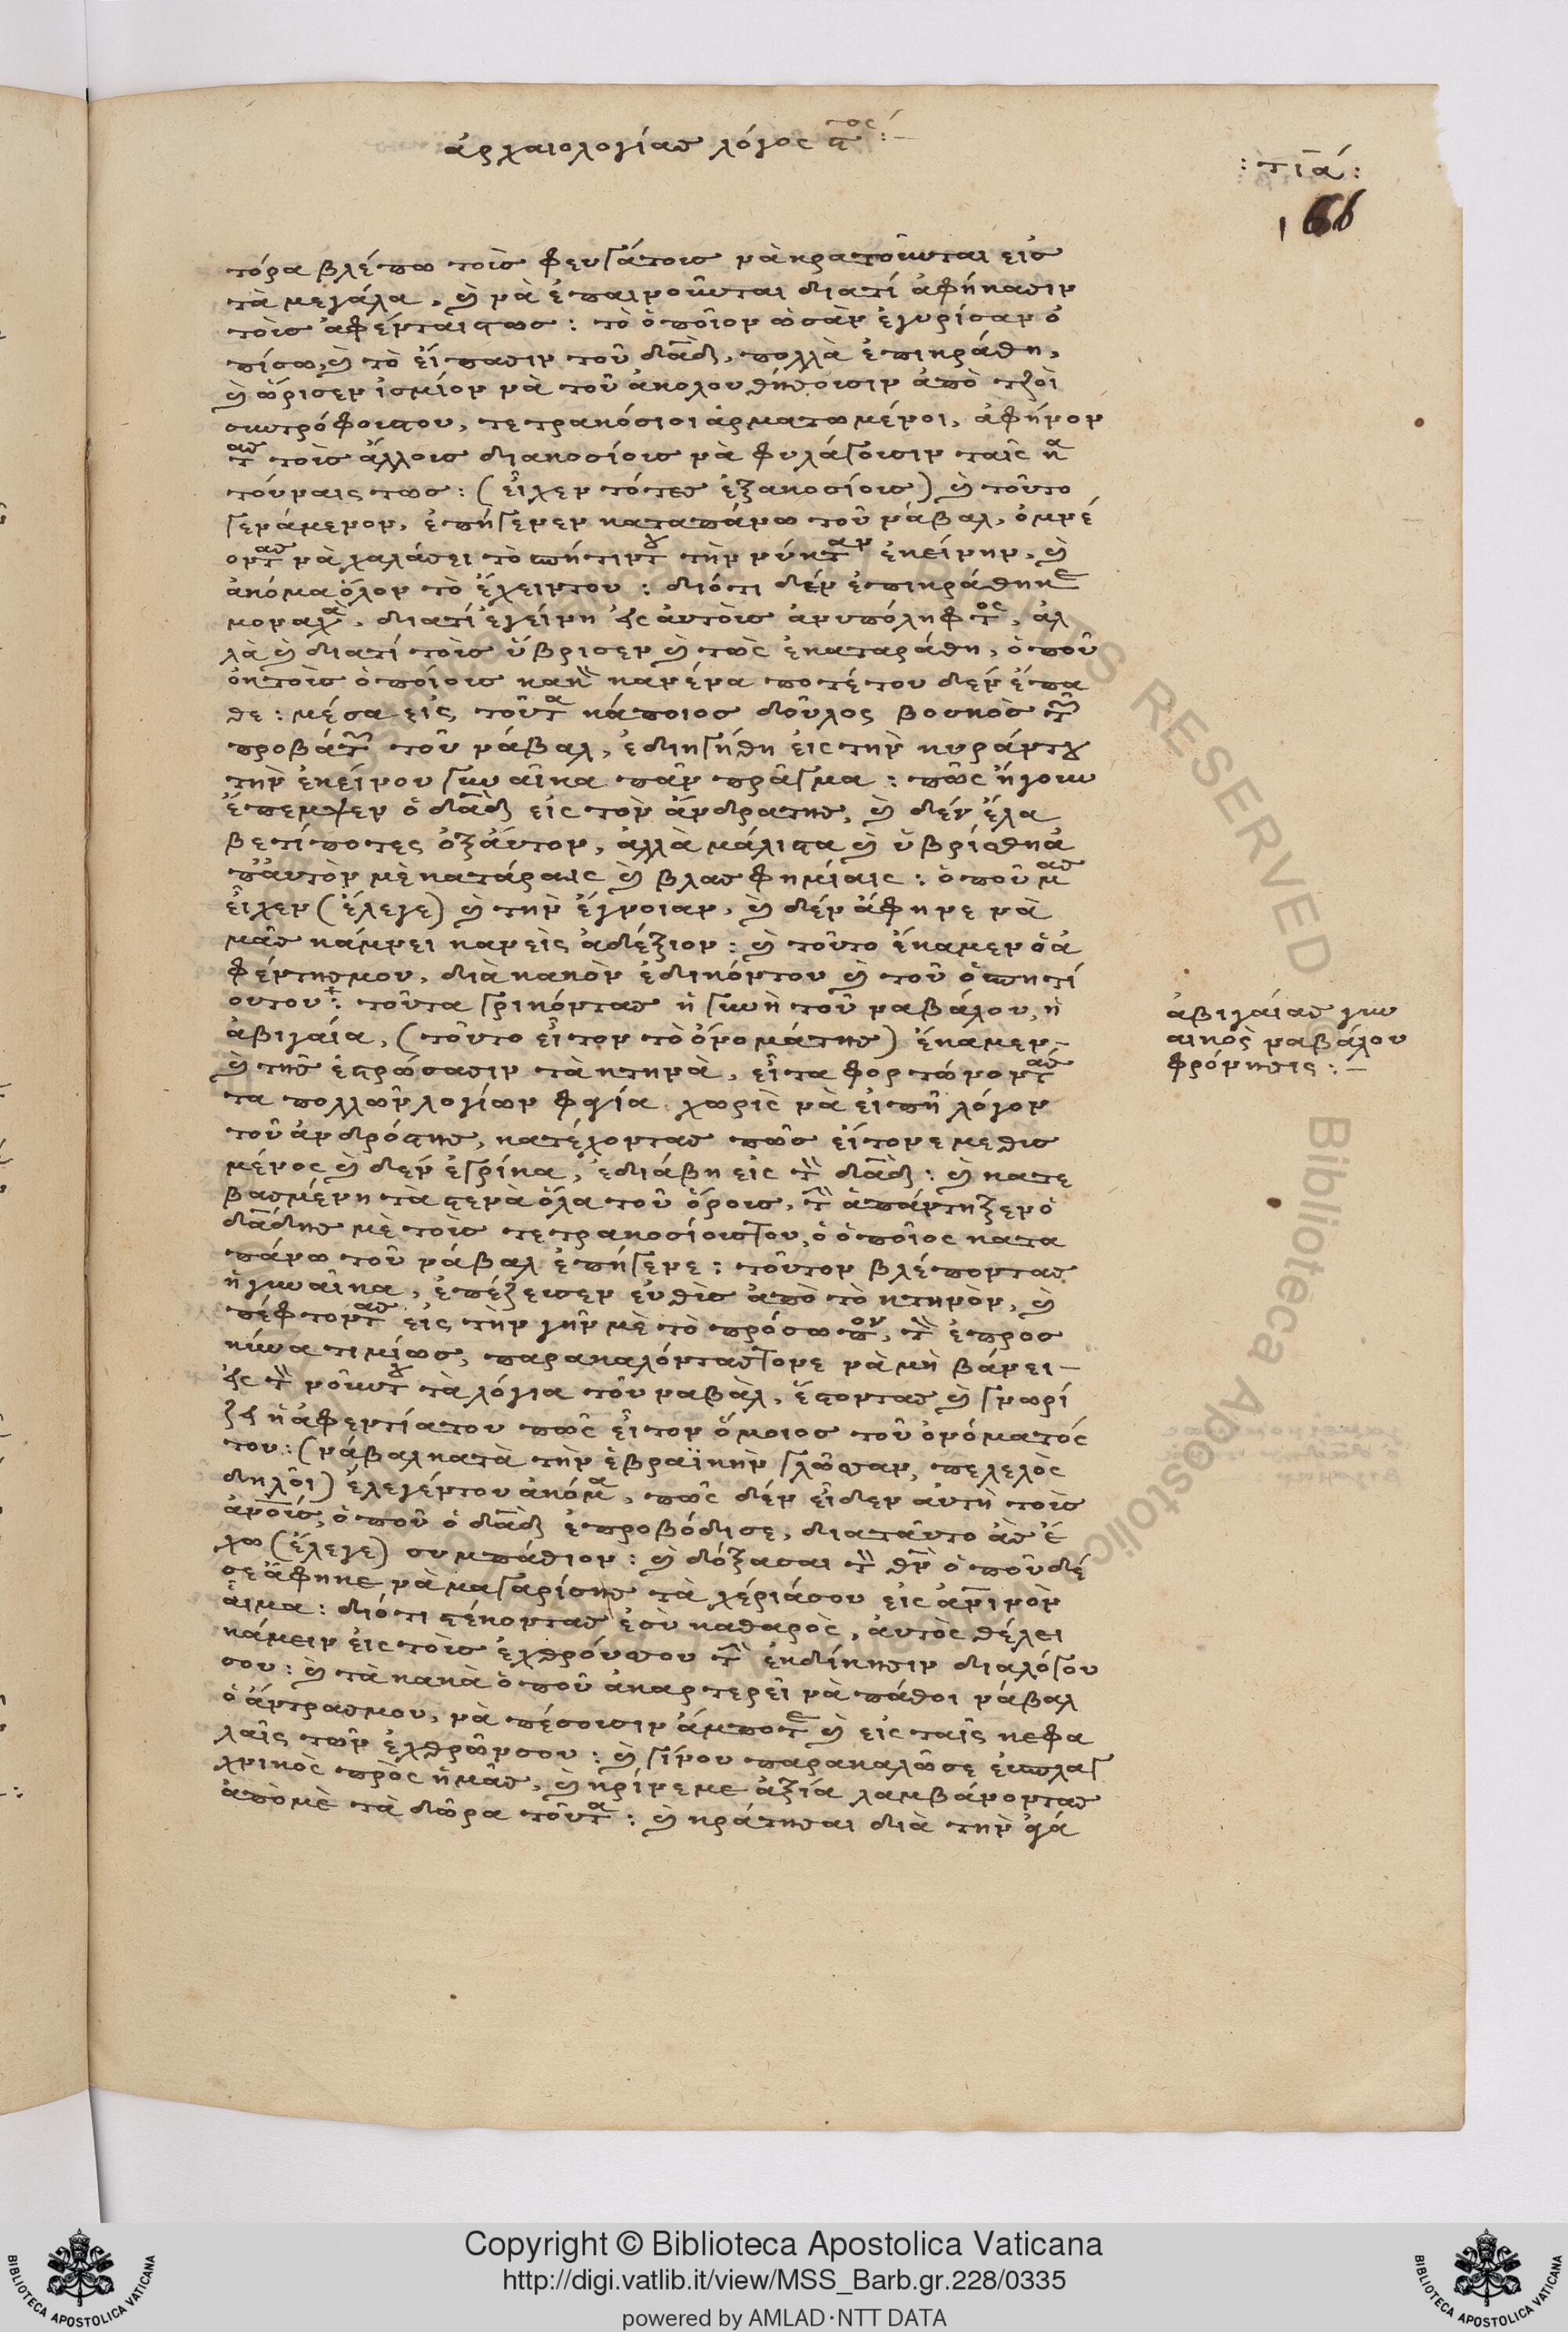 ἀρχαιολογίας λόγος ϛ^τος :–
: τιά :
166
τόρα βλέπω τοὶς φευγάτοις νὰ κρατοῦνται εἰς
τὰ μεγάλα, ϗ̀ νὰ ἐπαινοῦνται διατὶ ἀφήκασιν
τοὶς ἀφένταιςτως : τὸ ὁποῖον ὡσὰν ἐγυρίσαν ὀ
πίσω, ϗ̀ τὸ εἴπασιν τοῦ δᾱδ, πολλὰ ἐπικράθη,
ϗ̀ ὥρισεν ἰσμίον νὰ τοῦ ἀκολουθήσουσιν ἀπὸ τζοὶ
συντρόφουςτου, τετρακόσιοι ἁρματωμένοι, ἀφήνον
τας τοὶς ἄλλοις διακοσίοις νὰ φυλάγουσιν ταῖς κα
τούναις τως : (εἶχεν τότες ἑξακοσίοις) ϗ̀ τοῦτο
γενάμενον, ἐπήγενεν καταπάνω τοῦ νάβαλ, ὀμνέ
οντας νὰ χαλάσει τὸ σπήτιντου τὴν νύκταν ἐκείνην, ϗ̀
ἀκόμα ὅλον τὸ ἔχειντου : διότι δὲν ἐπικράθηκε
μοναχὰ, διατὶ ἐγείνη εἰς αὐτοὶς ἀνυπόληφτος, ἀλ
λὰ ϗ̀ διατὶ τοὶς ὕβρισεν ϗ̀ τὼς ἐκαταράθη, ὁποῦ
ἐκ τοὶς ὁποίοις κακὸν κανένα ποτέτου δὲν ἔπα
θε : μέσα εἰς τοῦτα κάποιος δοῦλος βοσκὸς τῶν
προβάτων τοῦ νάβαλ, ἐδιηγήθη εἰς τὴν κυράντου
τὴν ἐκείνου γυναῖκα πᾶν πρᾶγμα : πῶς ἤγουν
ἔπεμψεν ὁ δᾱδ εἰς τὸν ἄνδρατης, ϗ̀ δὲν ἔλα
βε τίποτες ὀξ αὖτον, ἀλλὰ μάλιστα ϗ̀ ὑβρίσθη ἀ
π' αὐτὸν μὲ κατάραις ϗ̀ βλασφημίαις : ὁποῦ μας
εἶχεν (ἔλεγε) ϗ̀ τὴν ἔγνοιαν, ϗ̀ δὲν ἄφηνε νὰ
μᾶς κάμνει κανεὶς ἀδέξιον : ϗ̀ τοῦτο ἔκαμεν ὁ ἀ
φέντηςμου, διὰ κακὸν ἐδικόντου ϗ̀ τοῦ ὁσπητί
ουτου : τοῦτα γρικόντας ἡ γυνὴ τοῦ ναβάλου, ἡ
ἀβιγαία, (τοῦτο εἶτον τὸ ὀνομάτης) ἔκαμεν
ϗ̀ τῆς ἐστρώσασιν τὰ κτηνὰ, εἶτα φορτώνοντάς
τα πολλῶν λογίων φγία χωρὶς νὰ εἰπῆ λόγον
τοῦ ἀνδρόςτης, κατέχοντας πῶς εἴτονε μεθισ
μένος ϗ̀ δὲν ἐγρίκα, ἐδιάβη εἰς τὸν δᾱδ : ϗ̀ κατε
βασμένη τὰ στενὰ ὅλα τοῦ ὄρους, τὴν ἀπάντηξεν ὁ
δᾱδης μὲ τοὶς τετρακοσίουςτου, ὁ ὁποῖος κατα
πάνω τοῦ νάβαλ ἐπήγενε : τοῦτον βλέποντας
ἡ γυναῖκα, ἐπέζευσεν εὐθὶς ἀπὸ τὸ κτηνὸν, ϗ̀
πέφτοντας εἰς τὴν γῆν μὲ τὸ πρόσωπον, τὸν ἐπροσ
κύνα τιμίως, παρακαλόντας τονε νὰ μὴ βάνει
εἰς τὸν νοῦντου τὰ λόγια τοῦ ναβὰλ, ἔστοντας ϗ̀ γνωρί
ζει ἡ ἀφεντίατου πῶς εἶτον ὅμοιος τοῦ ὀνόματός
του : (νάβαλ κατὰ τὴν ἑβραϊκὴν γλῶσσαν, πελελὸς
δηλοῖ) ἐλεγέντου ἀκόμα, πῶς δὲν εἶδεν αὐτὴ τοὶς
ἀνοὶς, ὁποῦ ὁ δᾱδ ἐπροβόδισε, διαταῦτο ἂς ἔ
χω (ἔλεγε) συμπάθιον : ϗ̀ δόξασαι τὸν θν ὁποῦ δέ
σε ἄφηκε νὰ μαγαρίσης τὰ χέριάσου εἰς ἀνινὸν
αἷμα : διότι στέκοντας ἐσὺ καθαρὸς, αὐτὸς θέλει
κάμειν εἰς τοὶς ἐχθρούςσου τὴν ἐκδίκησιν διαλόγου
σου : ϗ̀ τὰ κακὰ ὁποῦ ἀκαρτερεῖ νὰ πάθοι νάβαλ
ὁ ἄντρασμου, νὰ πέσουσιν ἄμποτε ϗ̀ εἰς ταῖς κεφα
λαῖς τῶν ἐχθρῶνσου : ϗ̀ γίνου παρακαλῶσε εὐσπλαγ
χνικὸς πρὸς ἡμᾶς, ϗ̀ κρίνεμε ἀξία λαμβάνοντας
ἀπὸ μὲ τὰ δῶρα τοῦτα : ϗ̀ κράτησαι διὰ τὴν ἀγά
ἀβιγαίας γυν
αικὸς ναβάλου
φρόνησις :–
ALL RIGHTS RESERVED © Biblioteca Apostolica
Copyright © Biblioteca Apostolica Vaticana
http://digi.vatlib.it/view/MSS_Barb.gr.228/0335
powered by AMLAD·NTT DATA
BIBLIOTECA APOSTOLICA VATICANA
BIBLIOTECA APOSTOLICA VATICANA